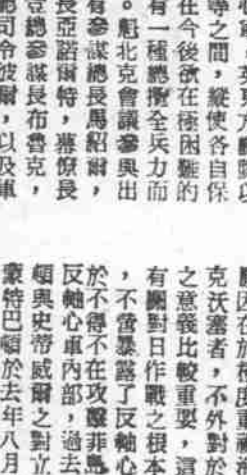 等之間,縱使各自保
在今後欲在極困難的
有一種總攬全兵力而
。魁北克會議參與出
有參謀總長馬紹爾,
長亞諾爾特,幕僚長
登總參謀長布魯克,
總司令彼爾,以及軍
克沃塞者,不外對於
之意義比較重要,這
有關對日作戰之根本
,不啻暴露了反軸心
於不得不在攻擊非島
反軸心軍內部,過去
頓與史蒂威爾之對立
蒙特巴頓於去年八月